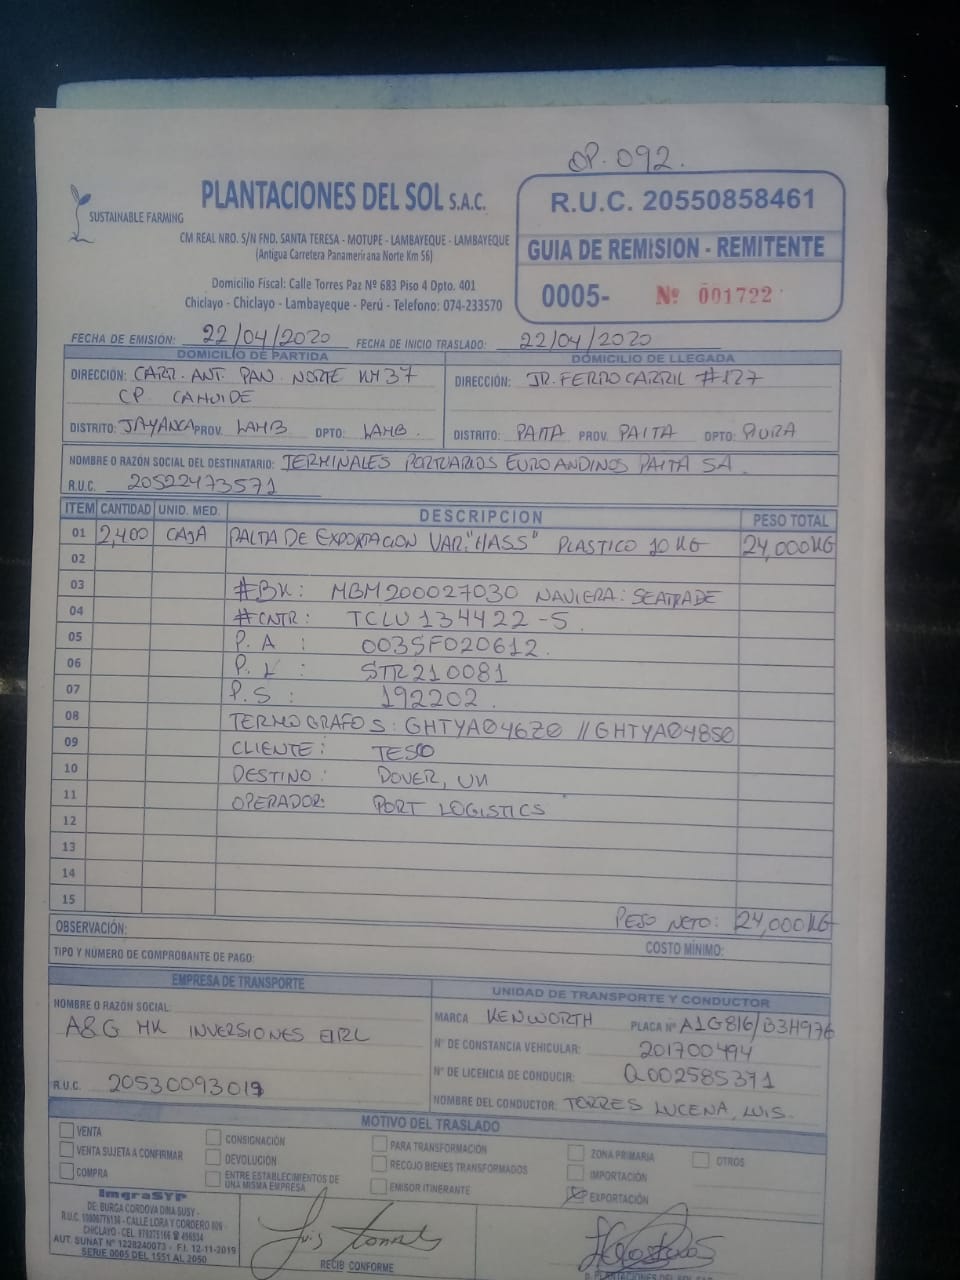 OP. 092.
SUSTAINABLE FARMING
PLANTACIONES DEL SOL S.A.C.
CM REAL NRO. S/N FND. SANTA TERESA - MOTUPE - LAMBAYEQUE - LAMBAYEQUE
(Antigua Carretera Panamerirana Norte Km 56)
Domicilio Fiscal: Calle Torres Paz Nº 683 Piso 4 Dpto. 401
Chiclayo - Chiclayo - Lambayeque - Perú - Telefono: 074-233570
R.U.C. 20550858461
GUIA DE REMISION - REMITENTE
0005- Nº 001722
FECHA DE EMISIÓN: 22/04/2020 FECHA DE INICIO TRASLADO: 22/04/2020
DOMICILIO DE PARTIDA
DIRECCIÓN: CARR. ANT. PAN. NORTE KM 37
CP CAHUIDE
DISTRITO: JAYANCA PROV. LAMB DPTO: LAMB.
DOMICILIO DE LLEGADA
DIRECCIÓN: JR. FERROCARRIL #127
DISTRITO: PAITA PROV. PAITA DPTO: PIURA
NOMBRE O RAZÓN SOCIAL DEL DESTINATARIO: TERMINALES PORTUARIOS EUROANDINOS PAITA SA
R.U.C. 20522473571
ITEM CANTIDAD UNID. MED. DESCRIPCION PESO TOTAL
01 2,400 CAJA PALTA DE EXPORTACION VAR. "HASS" PLASTICO 10 KG 24,000KG
02
03 #BK: MBM200027030 NAVIERA: SEATRADE
04 #CNTR: TCLU 134422-5
05 P. A : 003SF020612.
06 P. L : STR210081
07 P. S : 192202.
08 TERMOGRAFOS: GHTYA04620 // GHTYA04850
09 CLIENTE: TESCO
10 DESTINO: DOVER, UK
11 OPERADOR: PORT LOGISTICS
12
13
14
15
PESO NETO: 24,000KG
OBSERVACIÓN:
COSTO MÍNIMO:
TIPO Y NÚMERO DE COMPROBANTE DE PAGO:
EMPRESA DE TRANSPORTE
NOMBRE O RAZÓN SOCIAL:
A&G HK INVERSIONES EIRL
R.U.C. 20530093019
UNIDAD DE TRANSPORTE Y CONDUCTOR
MARCA KENWORTH PLACA Nº A1G816/B3H976
N° DE CONSTANCIA VEHICULAR: 201700494
N° DE LICENCIA DE CONDUCIR: Q002585371
NOMBRE DEL CONDUCTOR: TORRES LUCENA, LUIS.
MOTIVO DEL TRASLADO
VENTA
VENTA SUJETA A CONFIRMAR
COMPRA
CONSIGNACIÓN
DEVOLUCIÓN
ENTRE ESTABLECIMIENTOS DE
UNA MISMA EMPRESA
PARA TRANSFORMACION
RECOJO BIENES TRANSFORMADOS
EMISOR ITINERANTE
ZONA PRIMARIA
IMPORTACIÓN
EXPORTACIÓN
OTROS
ImgraSYP
DE: BURGA CORDOVA DINA SUSY -
CALLE LORA Y CORDERO
AUT. SUNAT Nº 1228240073 - F.I. 12-11-2019
SERIE 0005 DEL 1551 AL 2050
RECIBI CONFORME